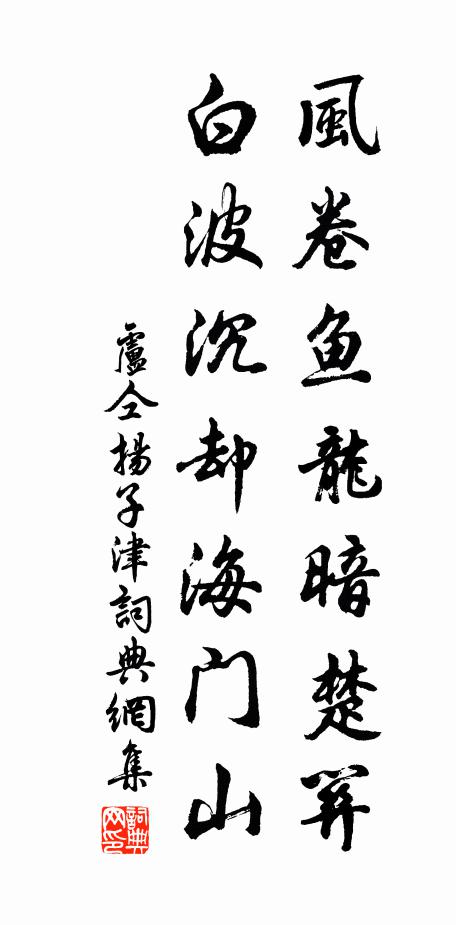 風卷鱼龍暗楚関
白波沉却海门山
盧仝揚子津詞典網集
詞典网印